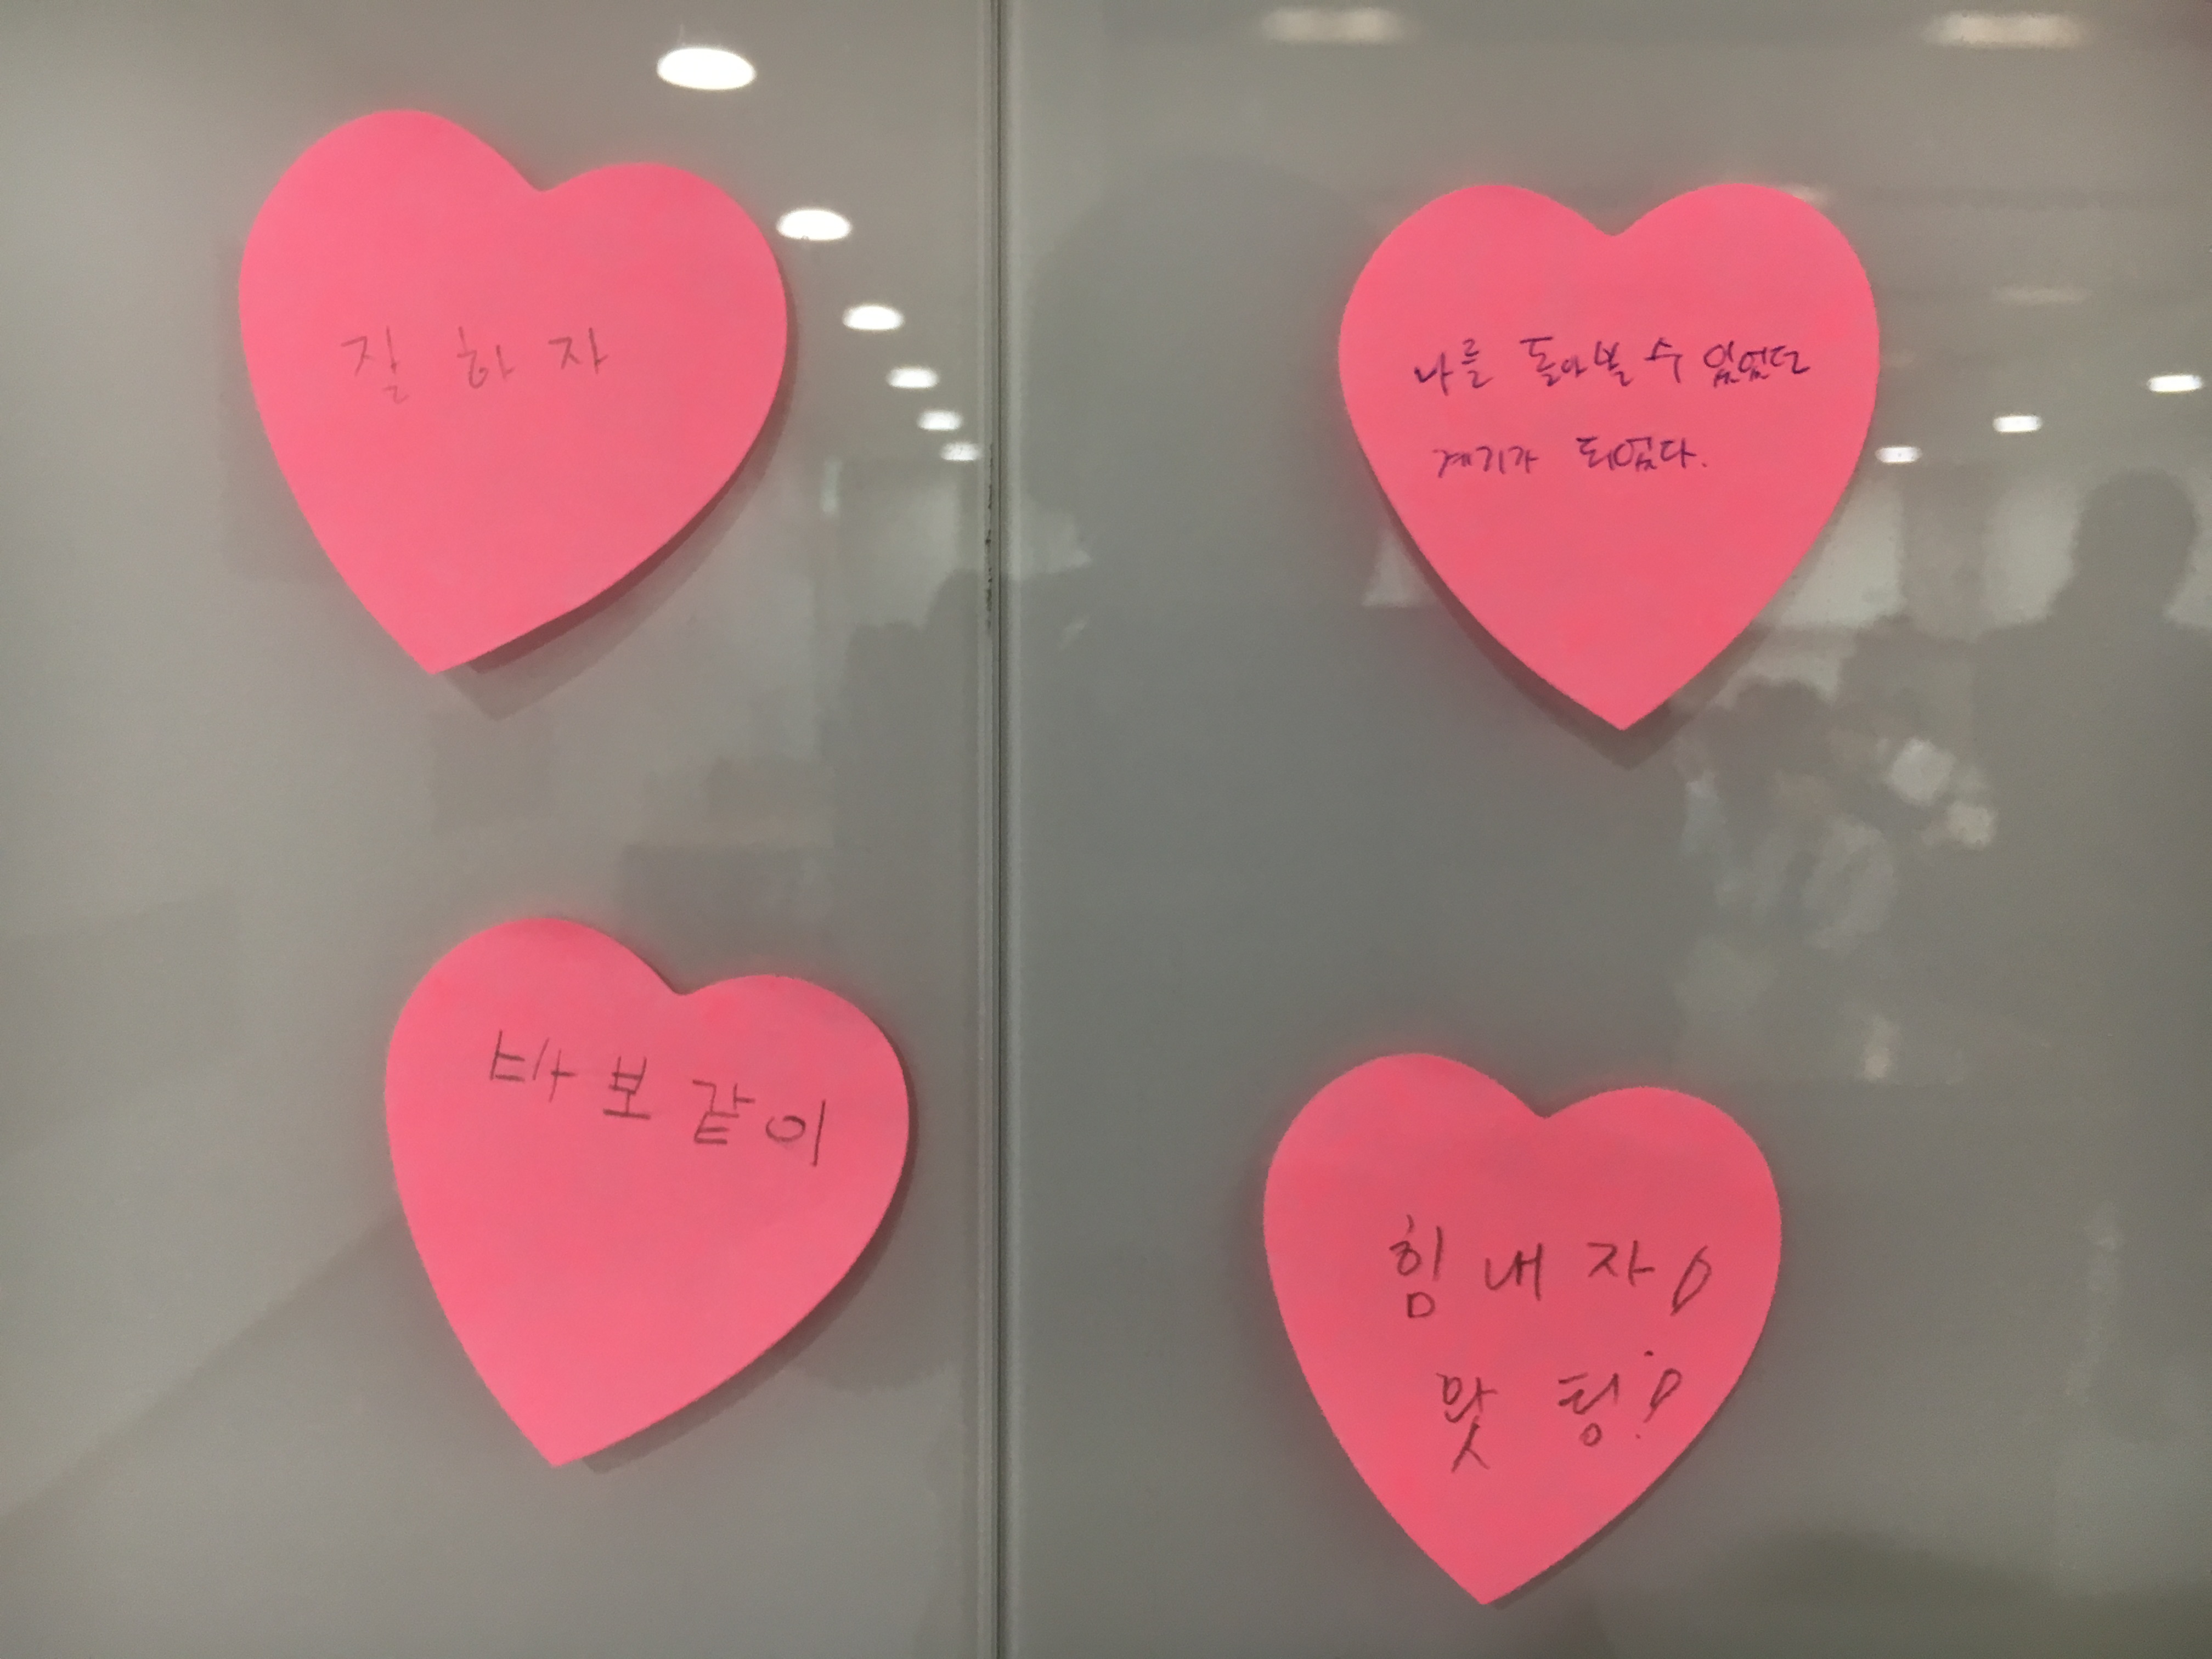 잘 하 자
나를 돌아볼 수 있었던
계기가 되었다.
바 보 같이
힘 내 자!
맛 팅!